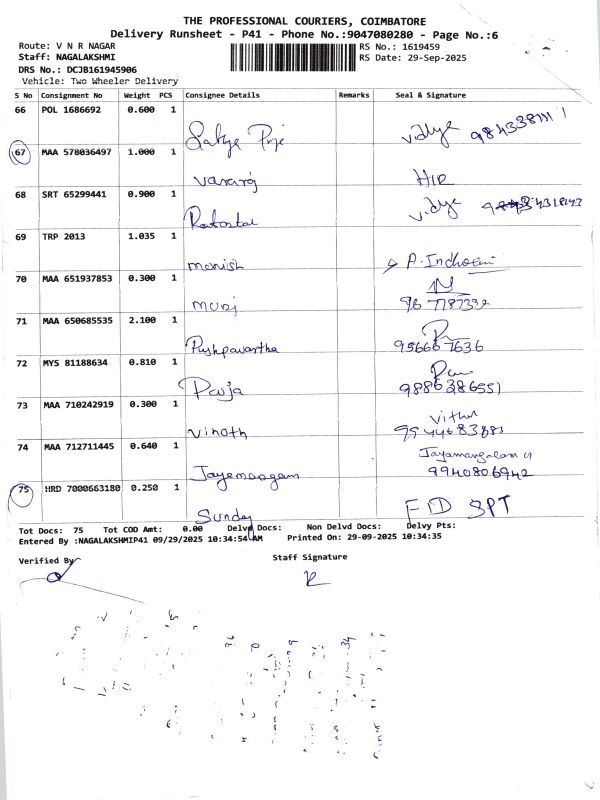 THE PROFESSIONAL COURIERS, COIMBATORE
Delivery Runsheet - P41 - Phone No.:9047080280 - Page No.:6
Route: V N R NAGAR
RS No.: 1619459
Staff: NAGALAKSHMI
RS Date: 29-Sep-2025
DRS No.: DCJB161945906
Vehicle: Two Wheeler Delivery
S No Consignment No Weight PCS Consignee Details Remarks Seal & Signature
66 POL 1686692 0.600 1
Vidhya
67 MAA 578036497 1.000 1
68 SRT 65299441 0.900 1
Vidya
69 TRP 2013 1.035 1
Manish A-Indhorani
70 MAA 651937853 0.300 1
Muraj 9677187392
71 MAA 650685535 2.100 1
Pushpavartha 9566671636
72 MYS 81188634 0.810 1
Pooja 9886386551
73 MAA 710242919 0.300 1
Vinoth
74 MAA 712711445 0.640 1
Jayamangalam
9940806942
75 HRD 7000663180 0.250 1
Sunday
Tot Docs: 75 Tot COD Amt: 0.00 Delvd Docs: Non Delvd Docs: Delvy Pts:
Entered By :NAGALAKSHMIP41 09/29/2025 10:34:54 AM Printed On: 29-09-2025 10:34:35
Verified By
Staff Signature